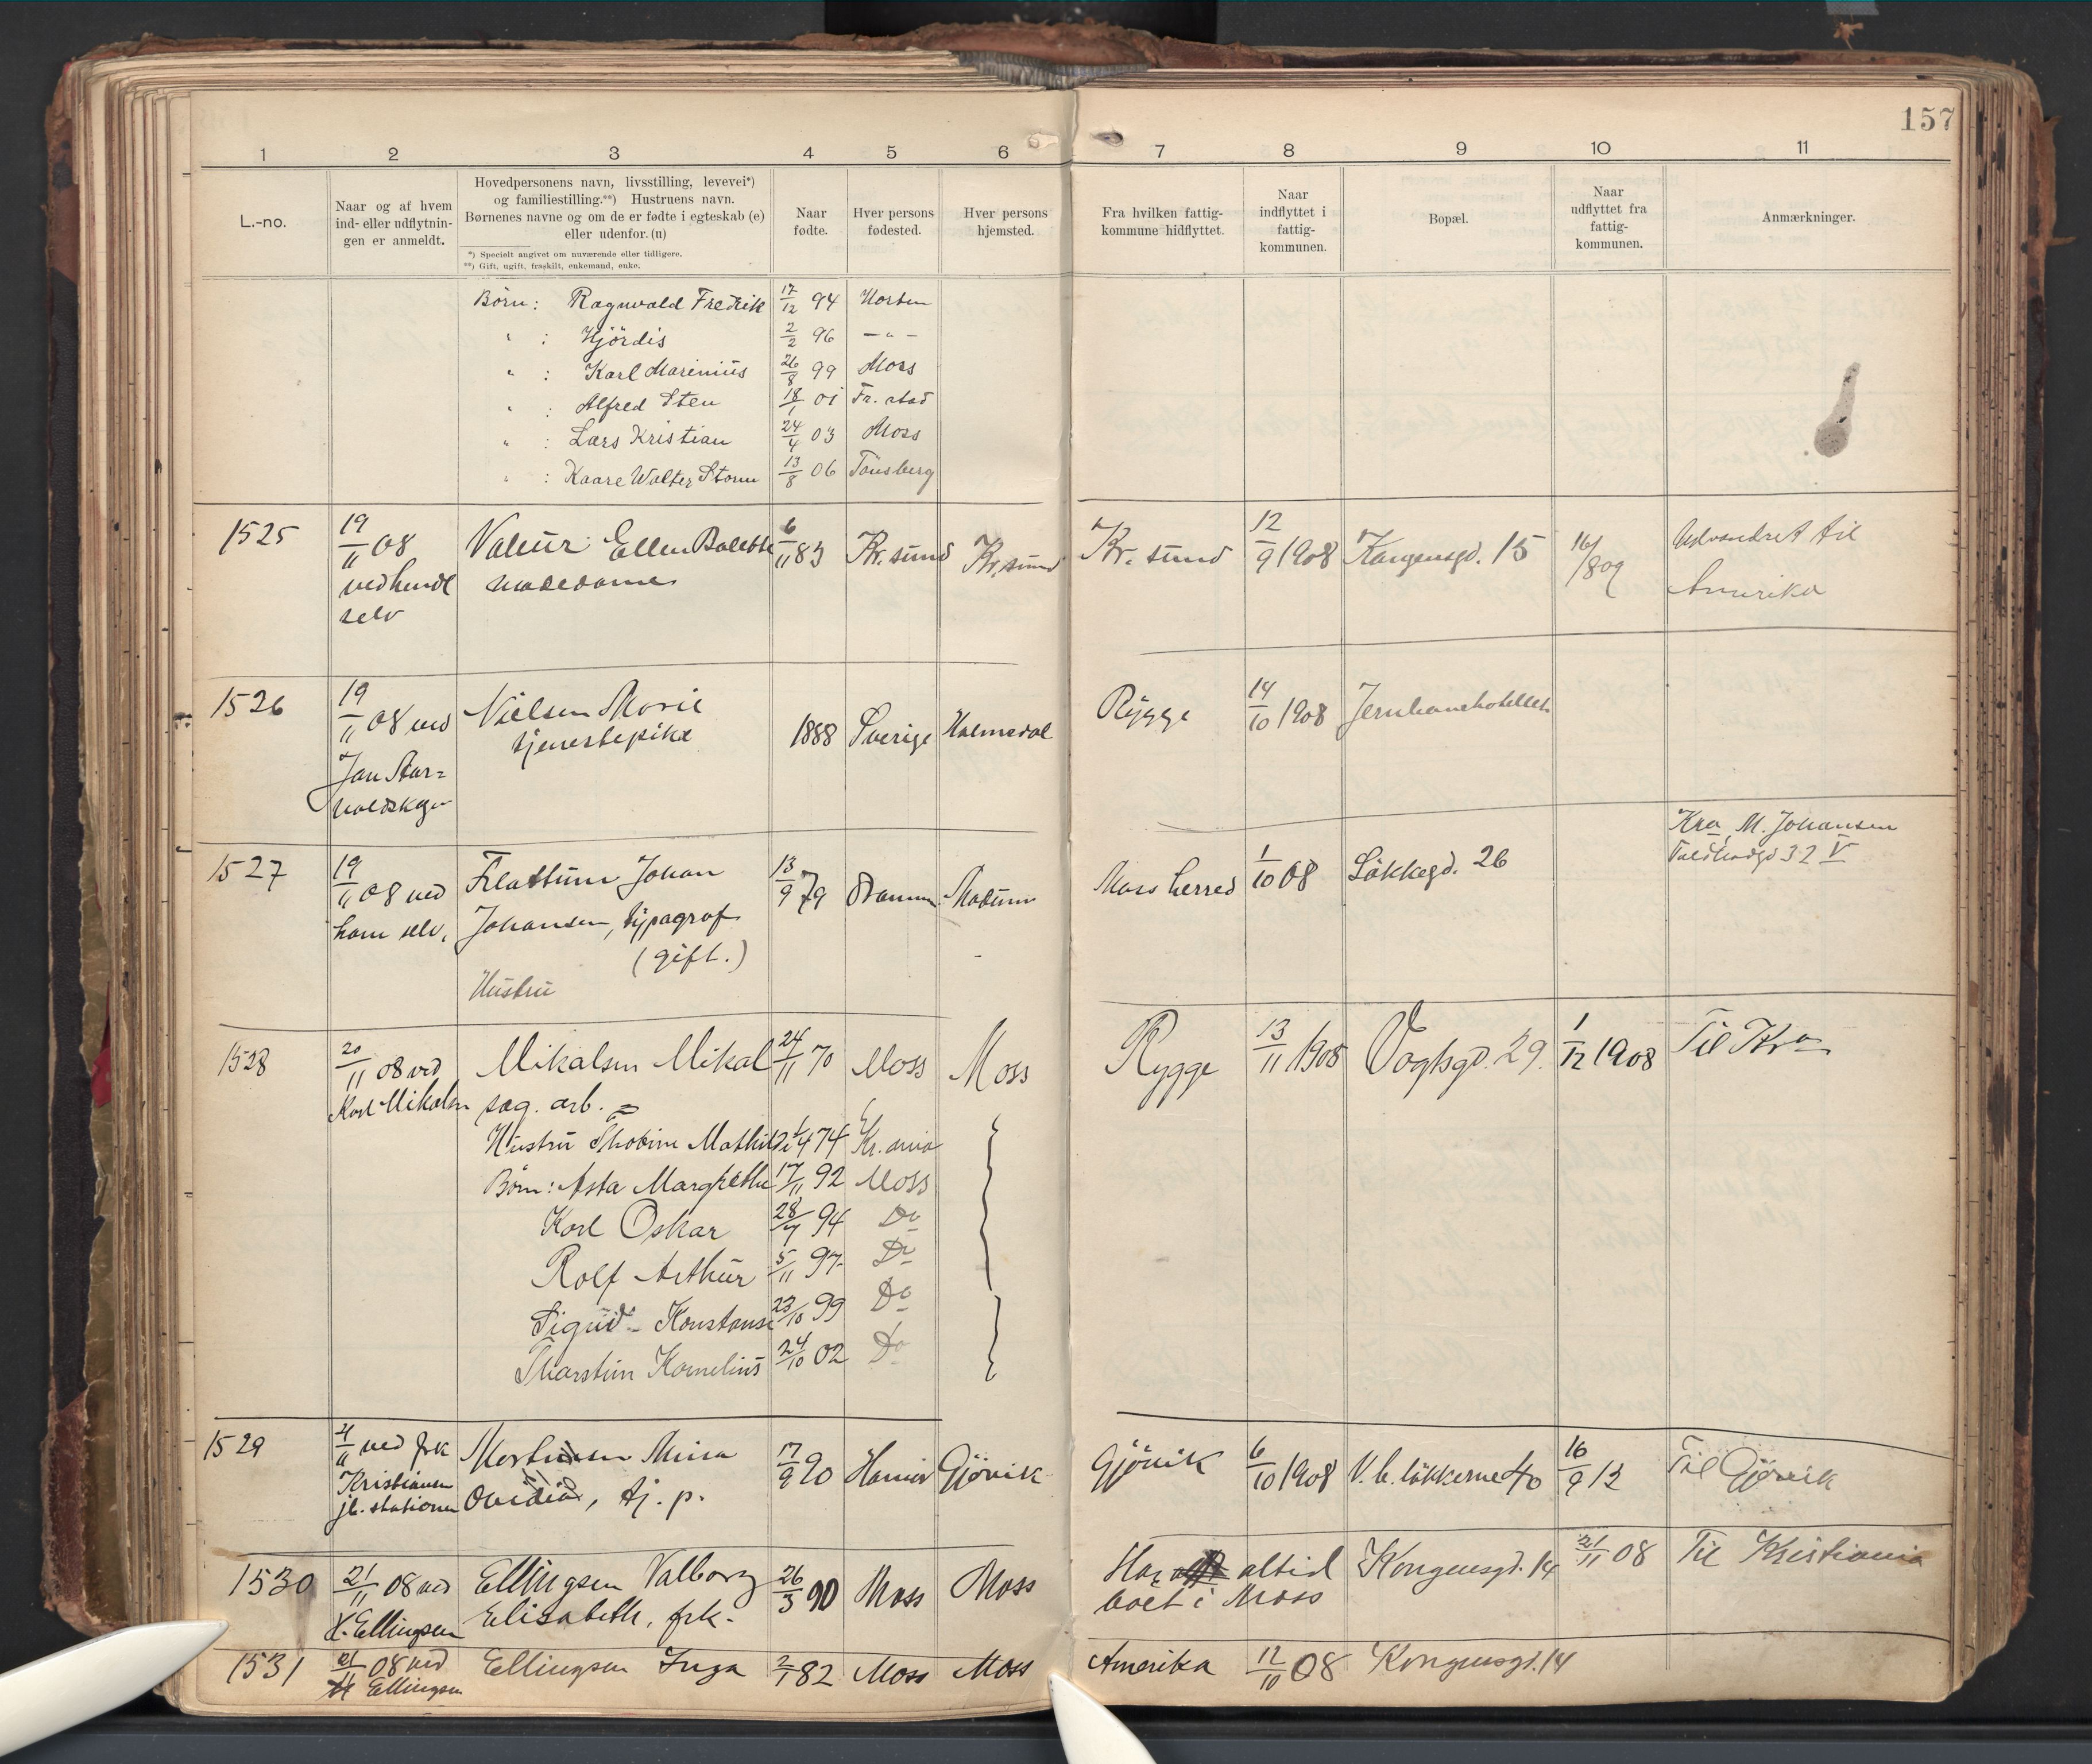 157
1 2 3 4 5 6 7 8 9 10 11
L.-no.
Naar og af hvem
ind- eller udflytnin-
gen er anmeldt.
Hovedpersonens navn, livsstilling, levevei*)
og familiestilling.**) Hustruens navn.
Børnenes navne og om de er fødte i egteskab (e)
eller udenfor. (u)
*) Specielt angivet om nuværende eller tidligere.
**) Gift, ugift, fraskilt, enkemand, enke.
Naar
fødte.
Hver persons
fødested.
Hver persons
hjemsted.
Fra hvilken fattig-
kommune hidflyttet.
Naar
indflyttet i
fattig-
kommunen.
Bopæl.
Naar
udflyttet fra
fattig-
kommunen.
Anmærkninger.
Börn: Ragnvald Fredrik 17/12 94 Horten
" : Hjördis 2/2 96 — " —
" : Karl Marinius 26/8 99 Moss
" : Alfred Sten 18/1 01 Fr. stad
" : Lars Kristian 24/4 03 Moss
" : Kaare Walter Storm 13/8 06 Tönsberg
1525 19/11 08 Valeur Ellen 6/11 83 Kr. sund Kr. sund Kr. sund 12/9 1908 Kongensgd. 15 16/8 09 Udvandret til
ved hende Amerika
selv
1526 19/11 08 ved Nielsen Marie 1888 Sverige Rygge 14/10 1908 Jernbanehotellet
tjenestepike
Jan
1527 19/11 08 ved Flattum Johan 13/9 79 Dramm. Modum Moss herred 1/10 08 Lökkegd. 26 Kra M. Johansen
32 V
ham selv, Johansen, typograf
(gift.)
Hustru
1528 20/11 08 ved Mikalsen Mikal 24/11 70 Moss Moss Rygge 13/11 1908 Vogtsgd. 29. 1/12 1908 Til Kra
Karl Mikalsen sag. arb.
Hustru Mathilde 1/4 74 Kr. ania
Börn: Asta Margrethe 17/11 92 Moss
Karl Oskar 28/7 94 Do
Rolf Arthur 5/11 97 Do
Sigurd Konstanse 23/10 99 Do
Kornelius 24/10 02 Do
1529 ved frk Mortinsen Mina 17/9 90 Hamar Gjövik Gjövik 6/10 1908 V. b. lökkerne 40 16/9 13 Til Gjövik
Kristiansen
jb. stationen tj. p.
1530 21/11 08 ved Ellingsen Valborg 26/3 90 Moss Moss Har altid Kongensgd. 14 21/11 08 Til Kristiania
H. Ellingsen Elisabeth, frk. boet i Moss
1531 21/11 08 ved Ellingsen Inga 2/1 82 Moss Moss Amerika 12/10 08 Kongensgd. 14
H Ellingsen